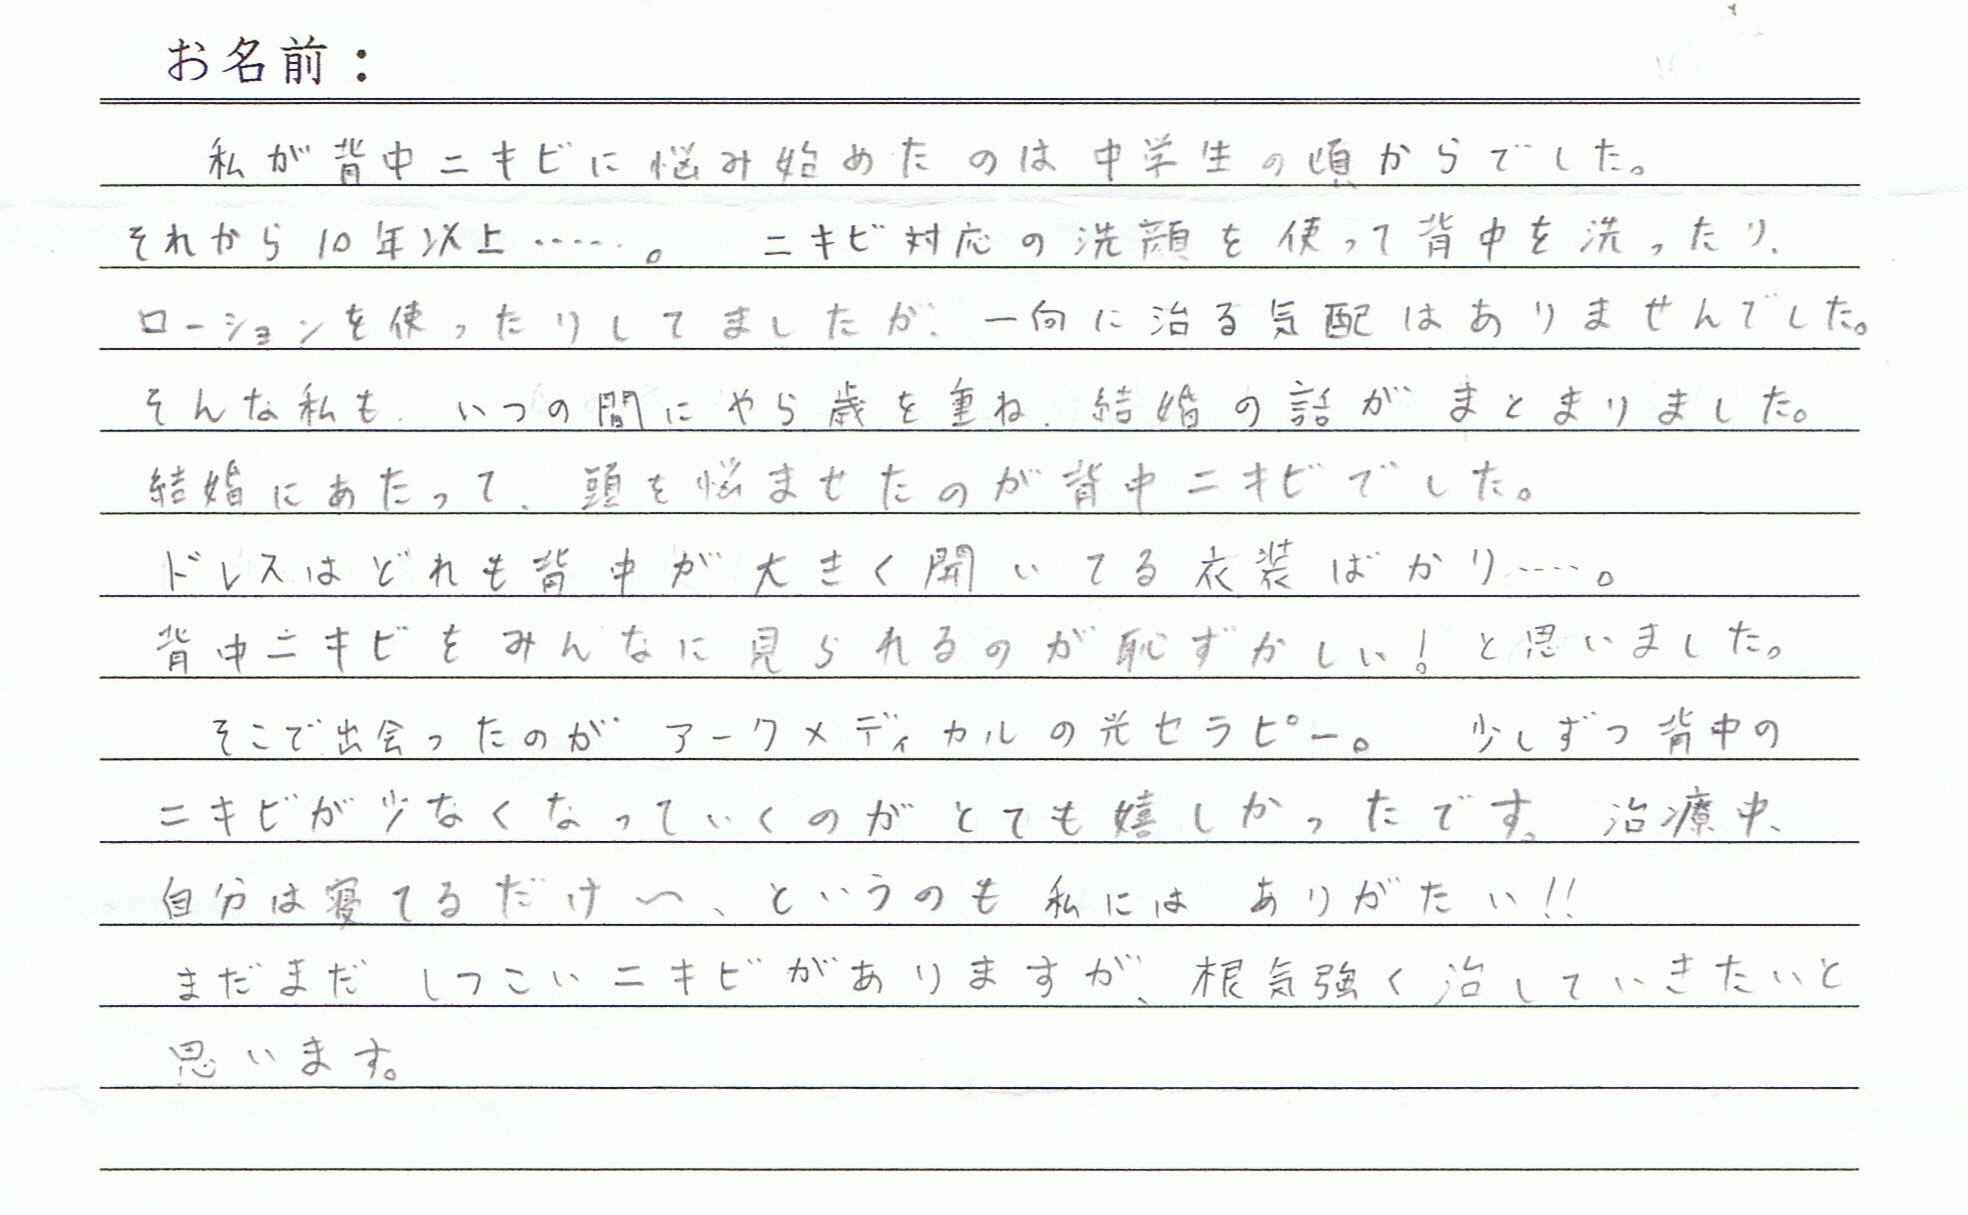 お名前：
私が背中ニキビに悩み始めたのは中学生の頃からでした。
それから10年以上……。 ニキビ対応の洗顔を使って背中を洗ったり、
ローションを使ったりしてましたが、一向に治る気配はありませんでした。
そんな私も、いつの間にやら歳を重ね、結婚の話がまとまりました。
結婚にあたって、頭を悩ませたのが背中ニキビでした。
ドレスはどれも背中が大きく開いてる衣装ばかり……。
背中ニキビをみんなに見られるのが恥ずかしい！と思いました。
そこで出会ったのがアークメディカルの光セラピー。 少しずつ背中の
ニキビが少なくなっていくのがとても嬉しかったです。 治療中、
自分は寝てるだけ〜、というのも私にはありがたい!!
まだまだしつこいニキビがありますが、根気強く治していきたいと
思います。